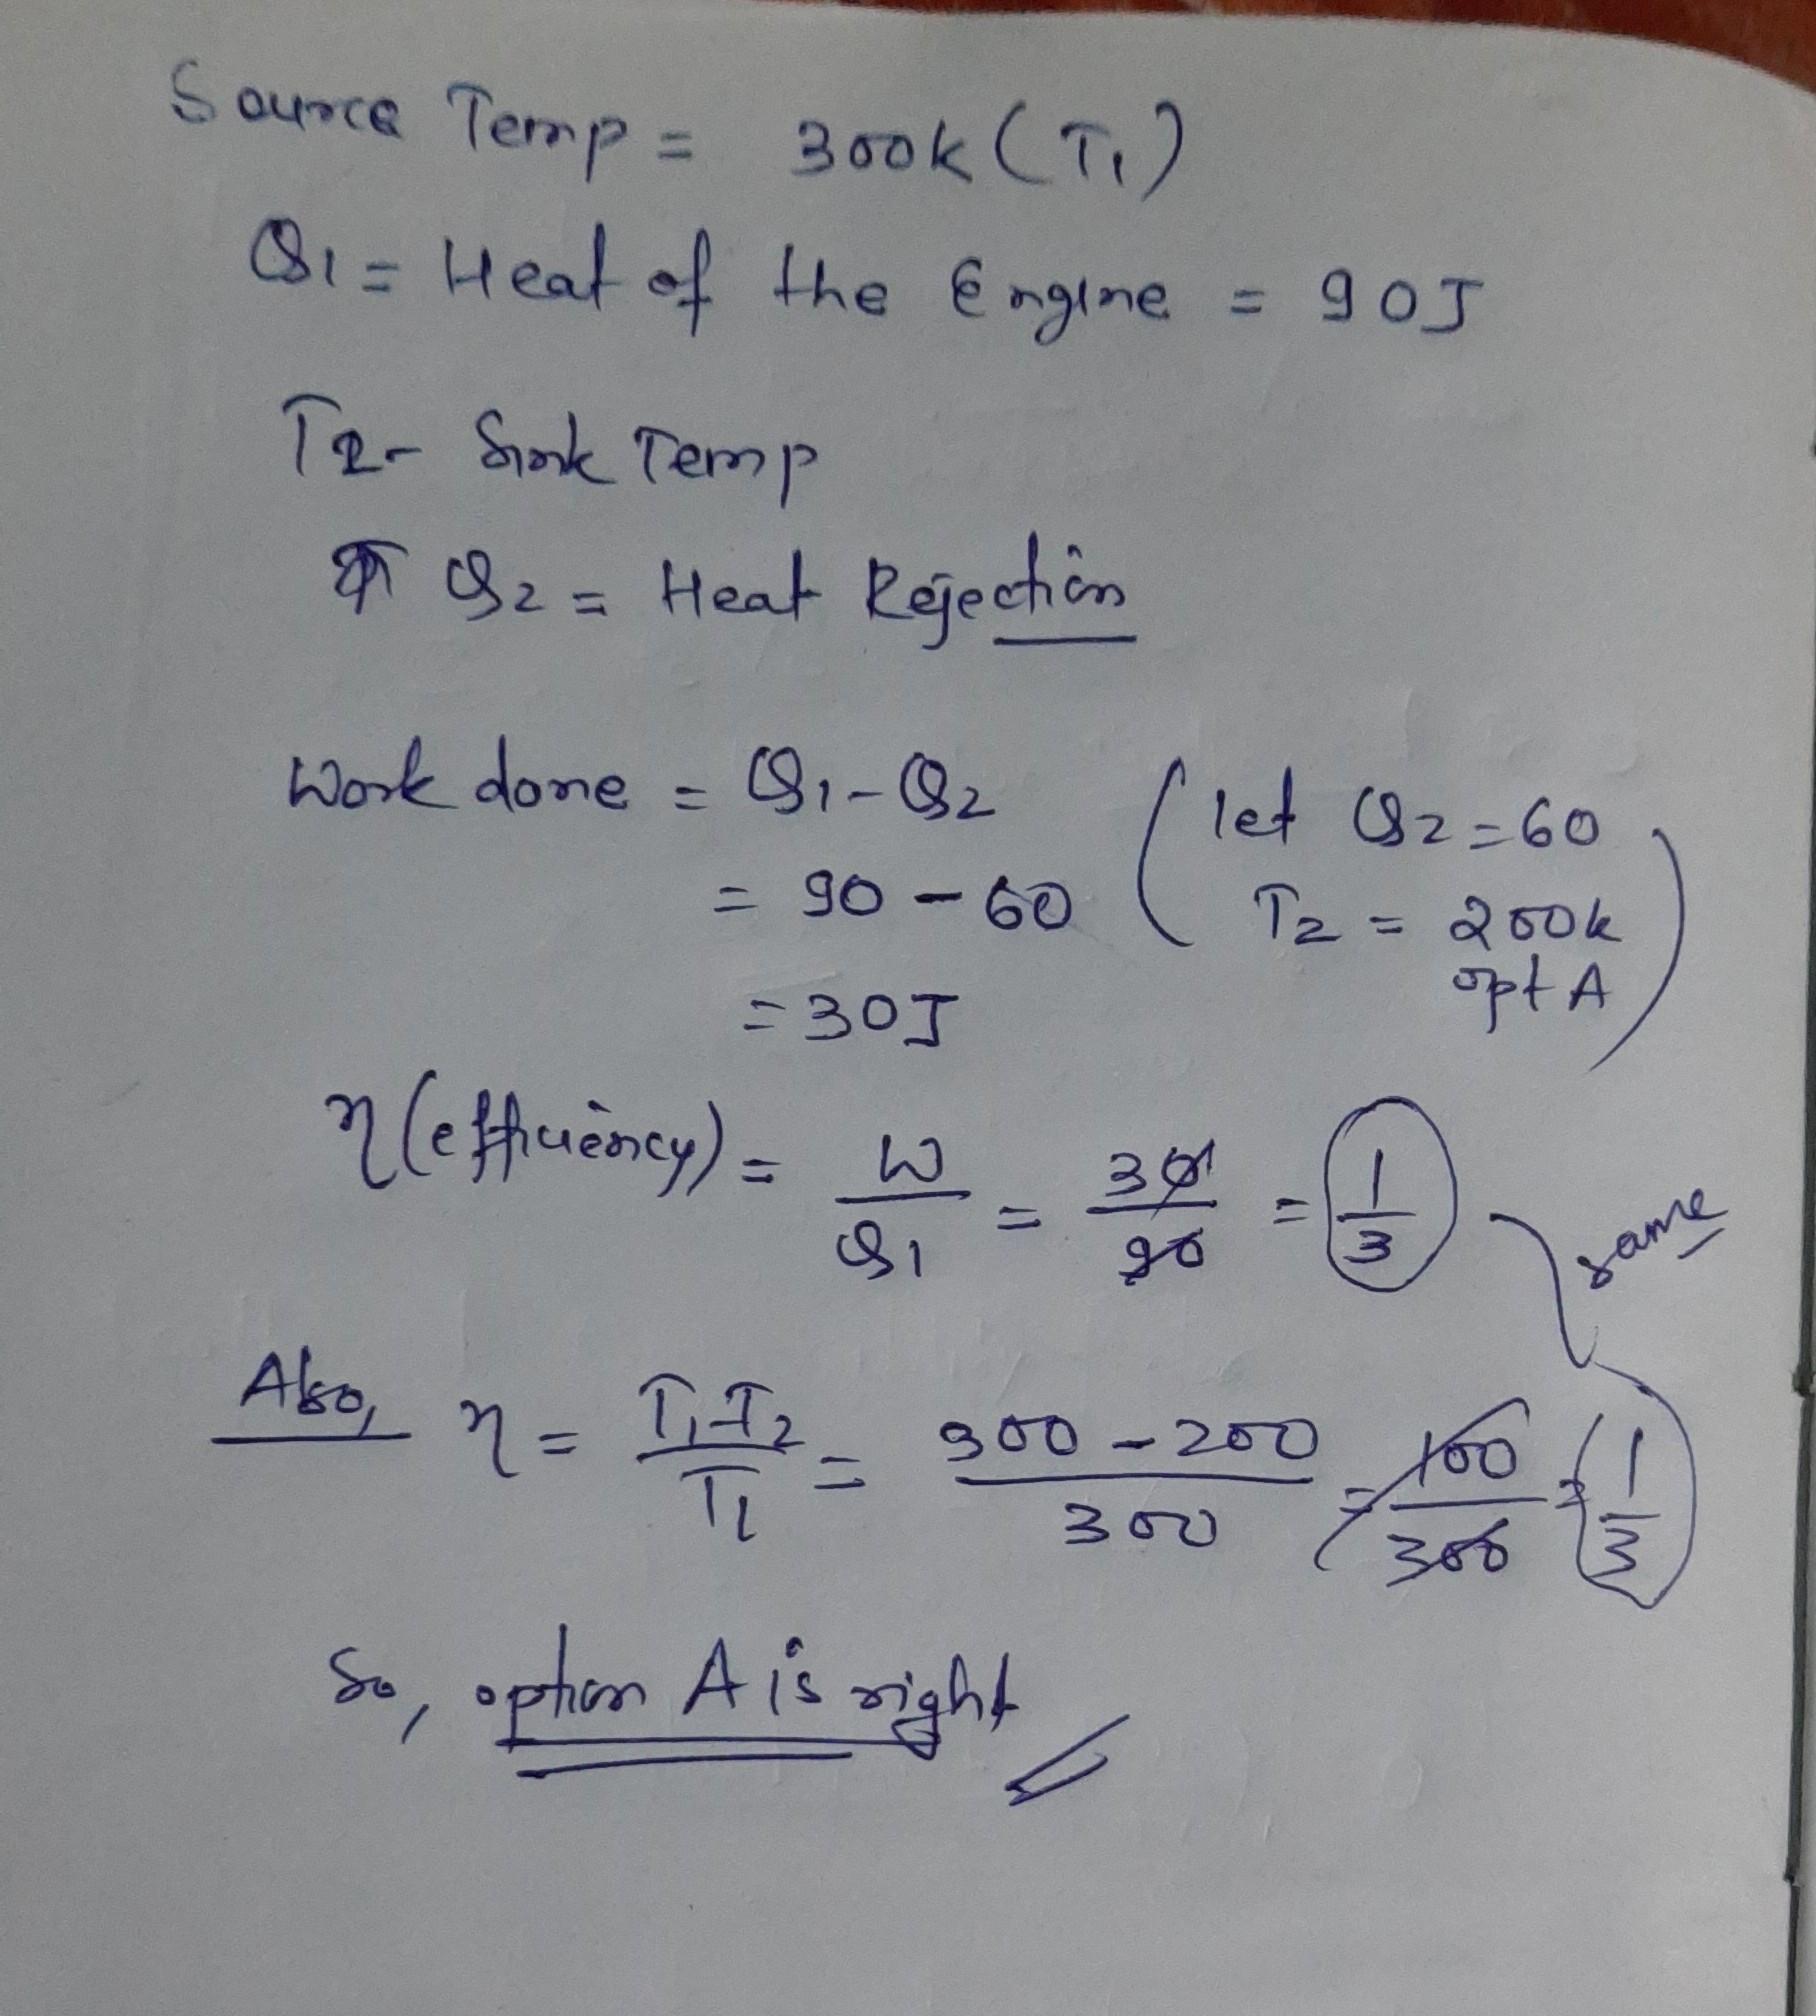 Source Temp = 300k (T1)
Q1 = Heat of the Engine = 90J
T2 - Sink Temp
Q2 = Heat Rejection
Work done = Q1 - Q2 (let Q2 = 60
= 90 - 60 T2 = 200k
opt A)
= 30J
η (efficiency) = W/Q1 = 30/90 = 1/3
same
Also, η = T1-T2/T1 = 300 - 200/300 = 100/300 = 1/3
So, option A is right